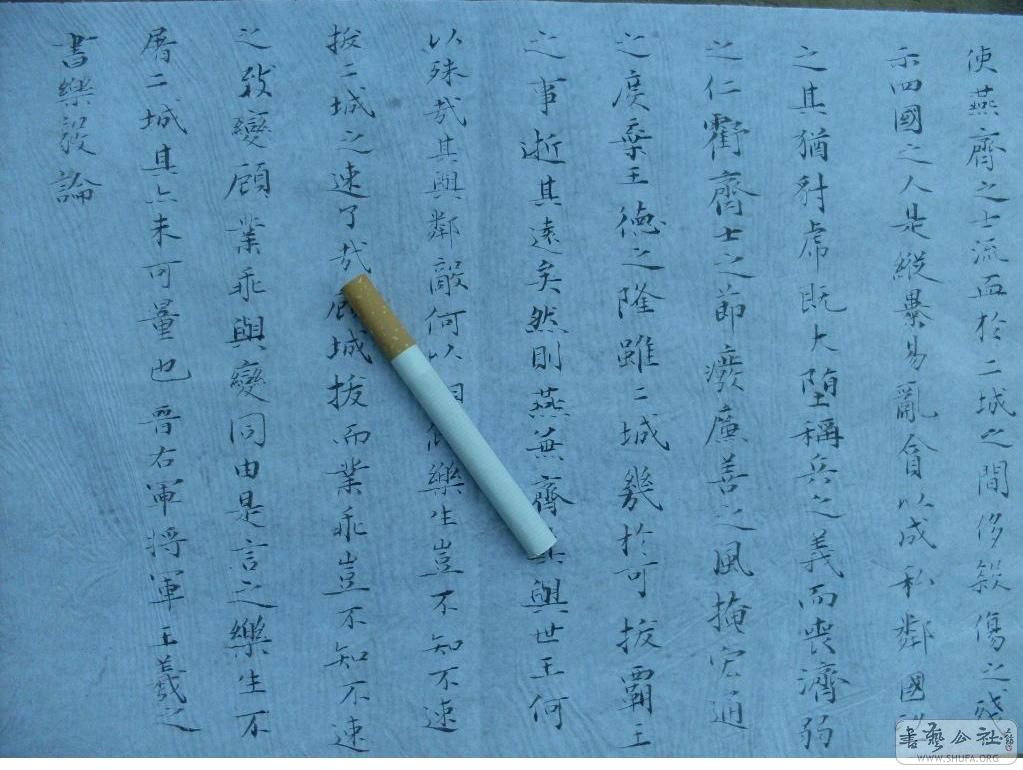 使燕齊之士流血於二城之間侈殺傷之殘
示四國之人是縱暴易亂貪以成私鄰國
之其猶豺虎既大墮稱兵之義而喪濟弱
之仁虧齊士之節癈廣善之風掩宏通
之度棄王德之隆雖二城幾於可拔霸王
之事逝其遠矣然則燕兼齊其與世王何
以殊哉其與鄰敵何以相傾樂生豈不知不速
拔二城之速了哉顧城拔而業乖豈不知不速
之致變顧業乖與變同由是言之樂生不
屠二城其亦未可量也 晉右軍將軍王羲之
書樂毅論
書藝公社
WWW.SHUFA.ORG